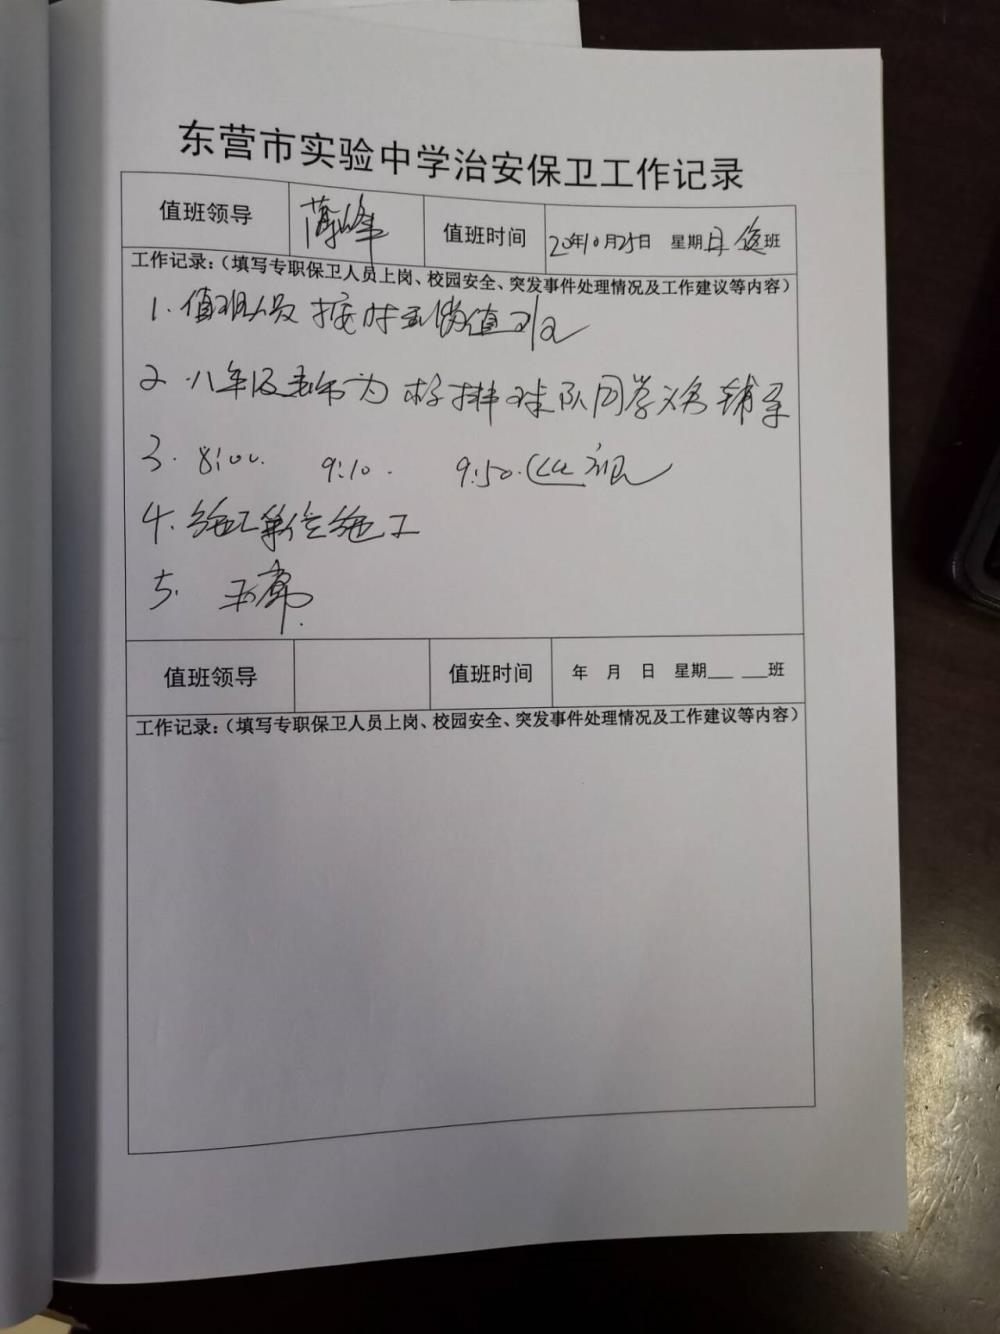 东营市实验中学治安保卫工作记录
值班领导 薄峰 值班时间 20年10月25日 星期日 值班
工作记录：（填写专职保卫人员上岗、校园安全、突发事件处理情况及工作建议等内容）
1. 值班人员按时到岗值班
2. 八年级老师为校排球队同学义务辅导
3. 8:00. 9:10. 9:50. 巡视
4. 施工单位施工
5. 正常.
值班领导 值班时间 年 月 日 星期___ ___班
工作记录：（填写专职保卫人员上岗、校园安全、突发事件处理情况及工作建议等内容）